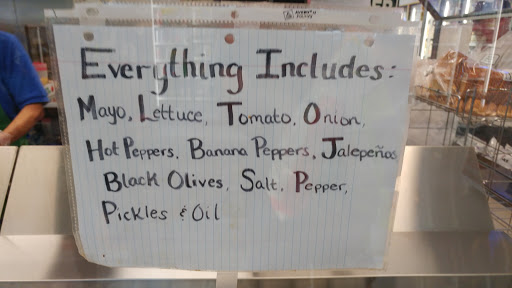 Everything Includes:
Mayo, Lettuce, Tomato, Onion,
Hot Peppers, Banana Peppers, Jalepeños
Black Olives, Salt, Pepper,
Pickles & Oil